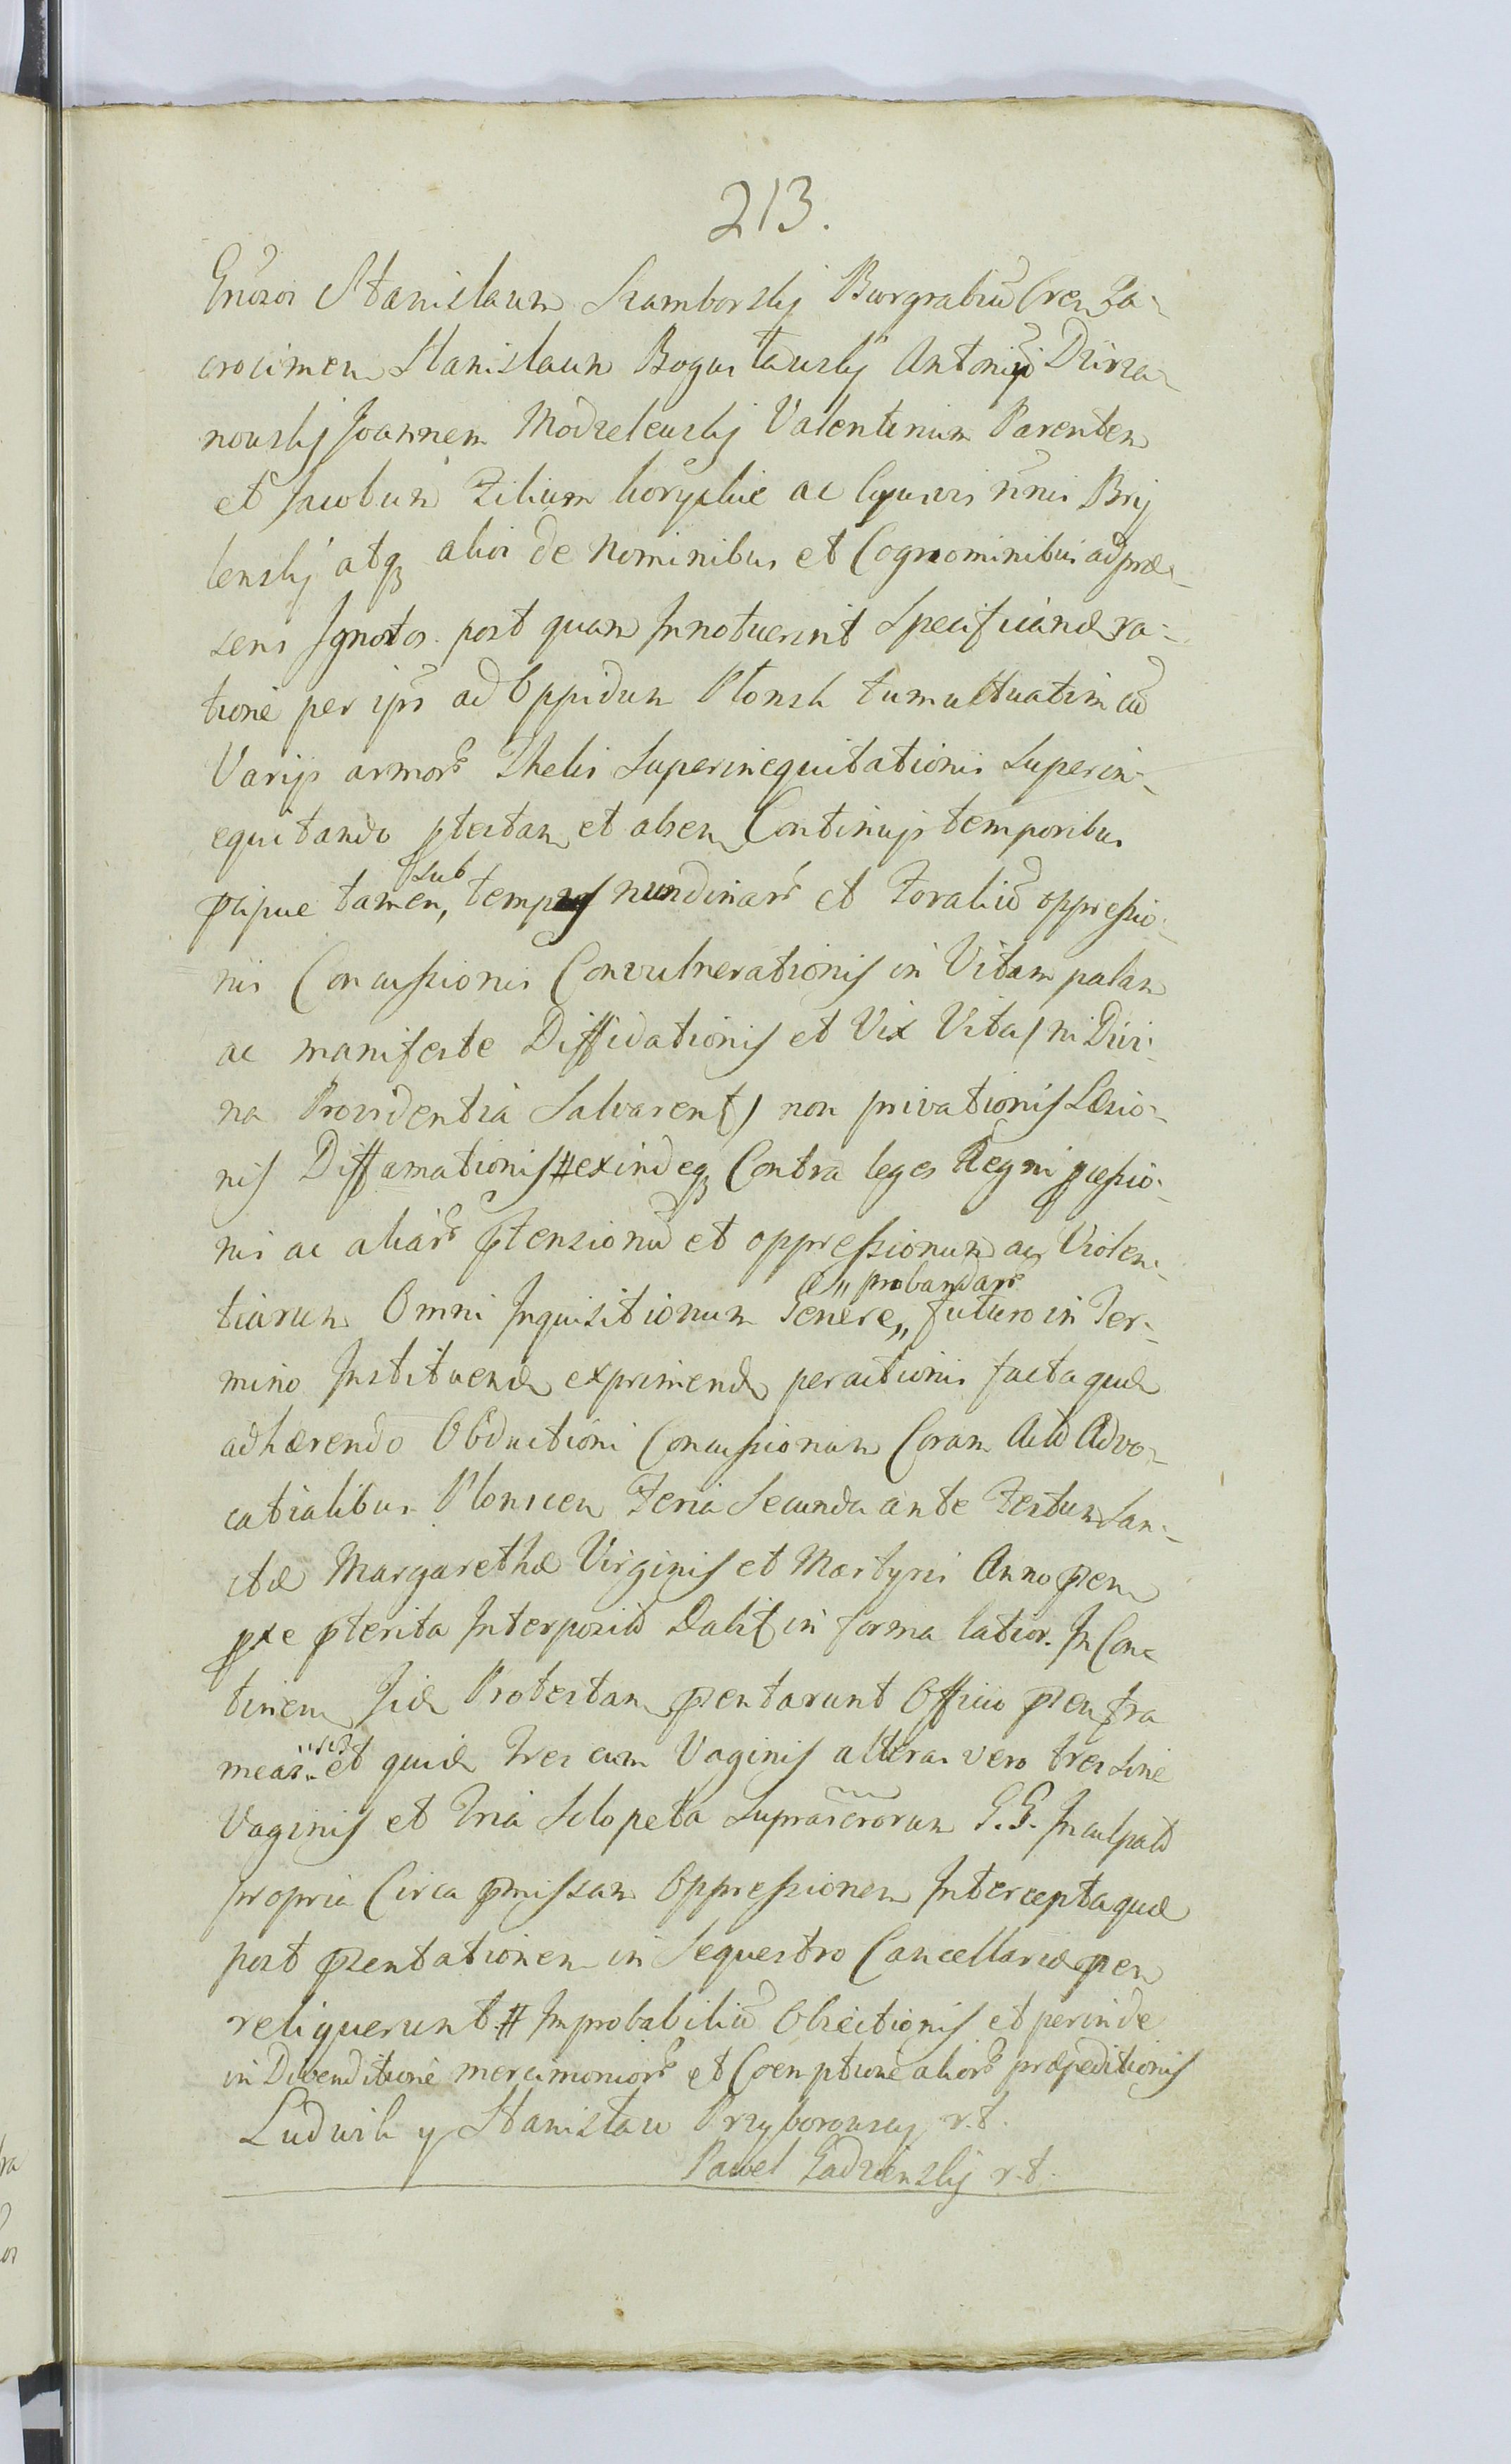 213.
Gnosos Stanislaum Szamborskj Burgrabiũ Cren Za-
crocimen Stanislaum Bogusławskj Antoniũ Dzirza-
nowskj Joannem Modzelewskj Valentinum Parentem
et Jacobum Filium ac cujusvis nris Brÿ
lenskj atq3 alios de Nominibus et Cognominibus ad præ-
sens Ignotos post quam Innotuerint Specificandæ ra-
tione per ipsos ad Oppidum Płonsk tumultuatim cũ
Varijs armorũ Thelis Superinequitationis Superin-
equitando ptestan et alsen Continujs temporibus
pcipue tamen, sub tempus nundinarũ et Foraliũ oppressio-
nis Concussionis Convulnerationis in Vitam palam
ac manifeste Diffidationis et Vix Vitas (ni Divi-
na Providentia Salvarent) non privationis Læsio-
nis Diffamationis # exindeq3 Contra leges Regni pcessio-
nis ac aliarũ ptensionũ et oppressionum ac Violen-
tiarum Omni Inquisitionum Genere,, e,, probandarũ futuro in Ter-
mino Instituendæ exprimendæ peractionis factaquæ
adhærendo Obductioni Concussionum Coram Actis Advo-
catialibus Plonscen Feria Secunda ante Festum San-
ctæ Margarethæ Virginis et Martyris Anno pen
pxe pterita Interposita Dabit in forma latior. In Con
tinen Iidem Protestan pentarunt Officio pen fra
meas et quidem tres cum Vaginis alteras vero tres sine
Vaginis et Tria Sclopeta Suprascrorum G.G. Inculpato
propria Circa pmissam Oppressionem Interceptaquæ
post pzentationem in Sequestro Cancellariæ pen
reliquerunt # Improbabiliũ Obiectionis et perinde
in Divenditione mercimoniorũ et Coemptione aliorũ præpeditionis
Ludwik y Stanisław Przyborowscy r.t.
Paweł Gadzienskj r.t.